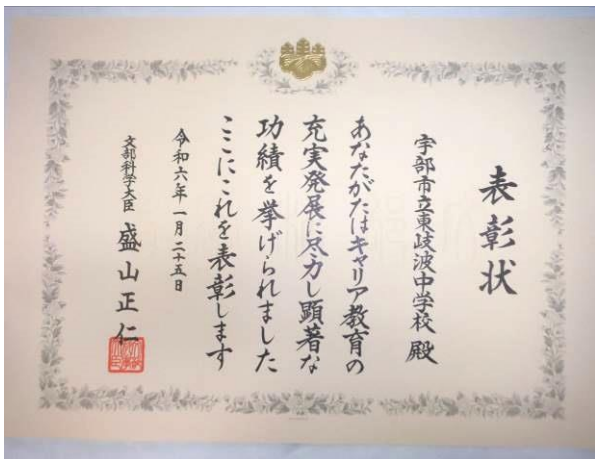 表彰状
宇部市立東岐波中学校 殿
あなたがたはキャリア教育の
充実発展に尽力し顕著な
功績を挙げられました
ここにこれを表彰します
令和六年一月二十五日
文部科学大臣 盛山正仁